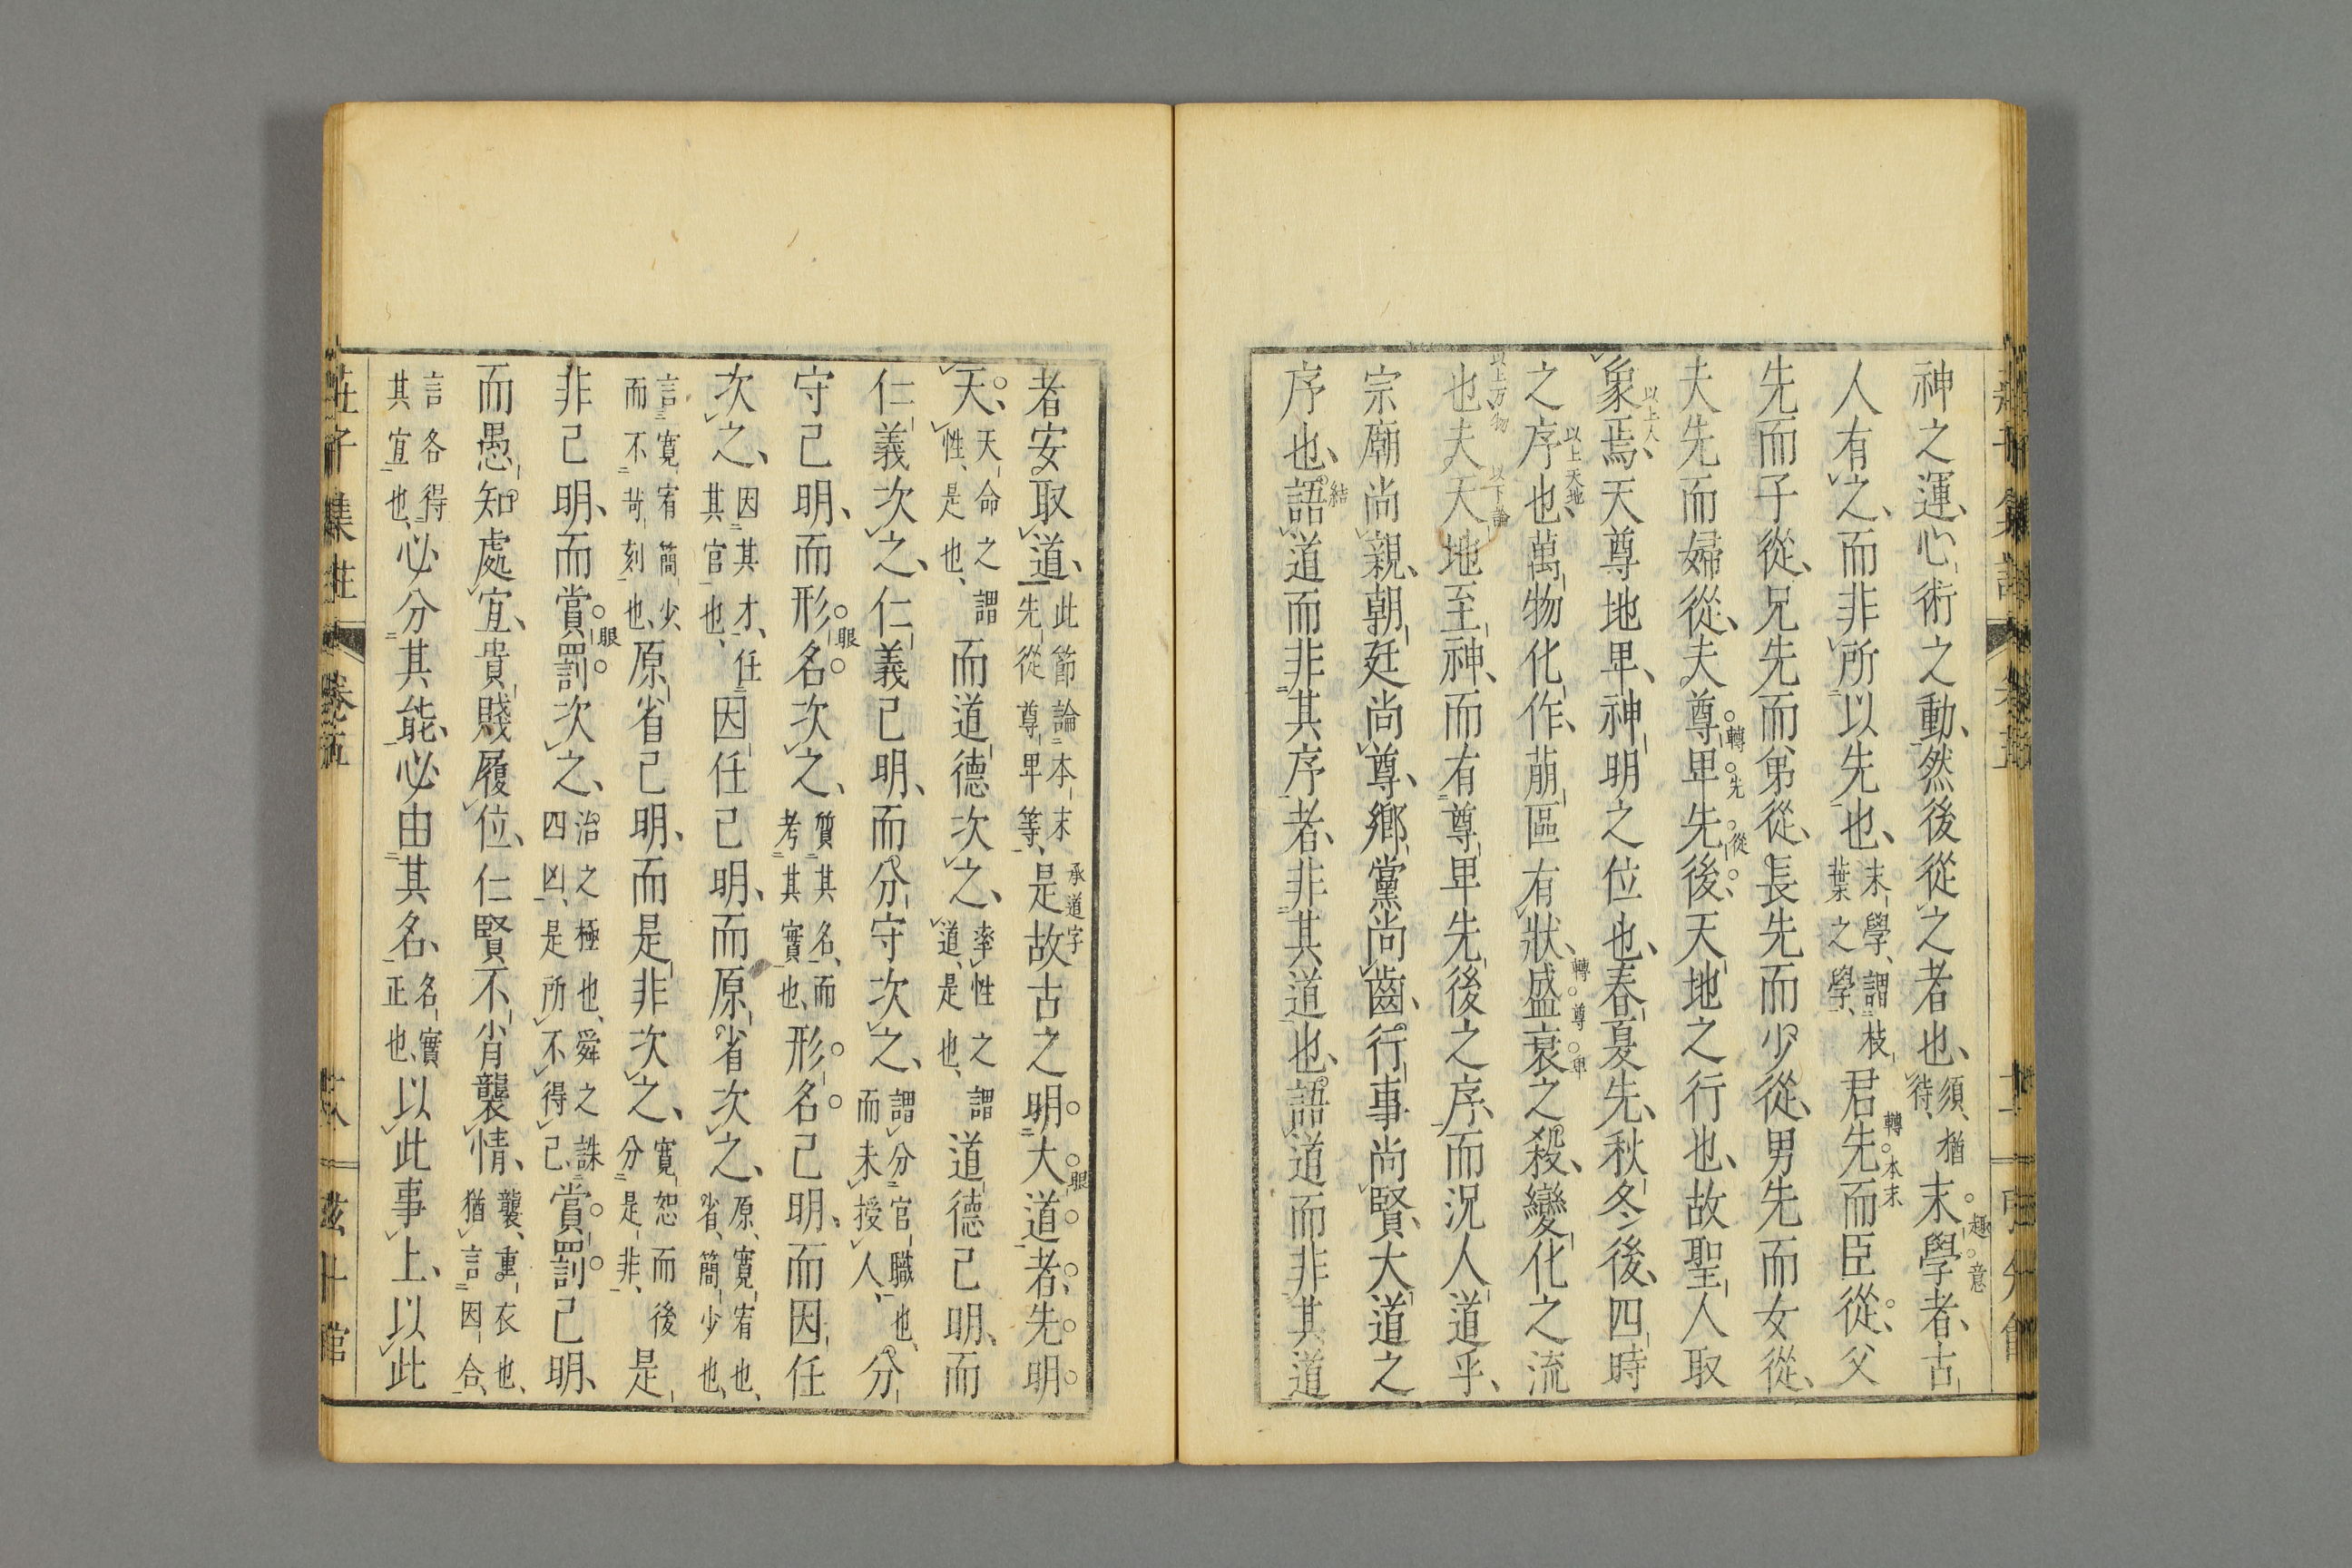 神之運、心術之動、然後從之者也、須、猶待、末學者、古
人有之、而非所以先也、末學、謂枝葉之學、君先而臣從、父
先而子從、兄先而弟從、長先而少從、男先而女從、
夫先而婦從、夫尊卑先後、天地之行也、故聖人取
象焉、天尊地卑、神明之位也、春夏先、秋冬後、四時
之序也、萬物化作、萠區有狀、盛衰之殺、變化之流
也、夫天地至神、而有尊卑先後之序、而況人道乎、
宗廟尚親、朝廷尚尊、鄉黨尚齒、行事尚賢、大道之
序也、語道而非其序者、非其道也、語道而非其道
者安取道、此節論本末先從尊卑等、是故古之明大道者、先明
天、天命之謂性、是也、而道德次之、率性之謂道、是也、道德已明、而
仁義次之、仁義已明、而分守次之、謂分官職也、而未授人、分
守已明、而形名次之、質其名、而考其實也、形名已明、而因任
次之、因其才、任其官也、因任已明、而原省次之、原、寬宥也、省、簡少也、
言寬宥簡少、而不苛刻也、原省已明、而是非次之、寬恕而後分是非、是
非已明、而賞罰次之、治之極也、舜之誅四凶、是所不得已、賞罰已明、
而愚知處宜、貴賤履位、仁賢不肖襲情、襲、重衣也、猶言因合、
言各得其宜也、必分其能、必由其名、名實正也、以此事上、以此
莊子集註 卷五
轉本末
趣意
轉先從
以上人
以上天地
轉尊卑
以上万物
以下論
結
承道字
眼
眼
眼